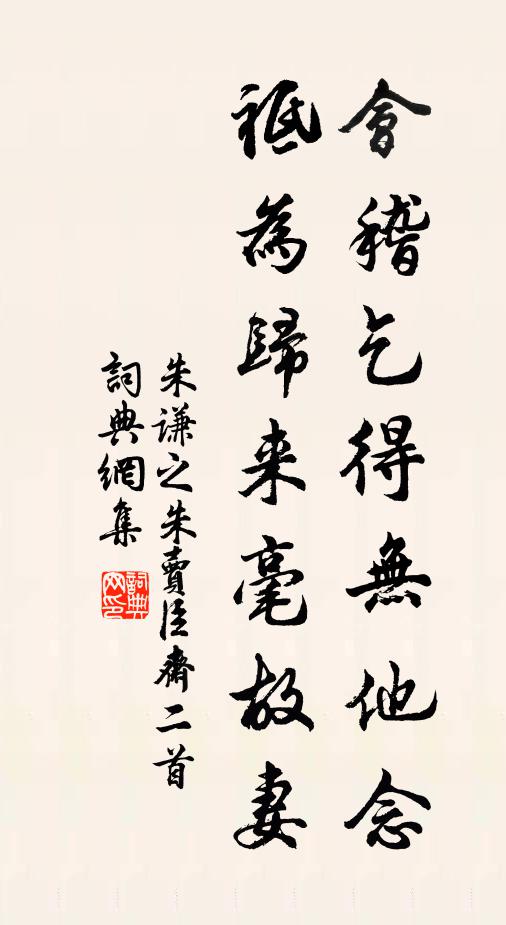 會稽乞得無他念
祗為歸来毫故妻
朱谦之朱賣臣齋二首
詞典網集
詞典网印